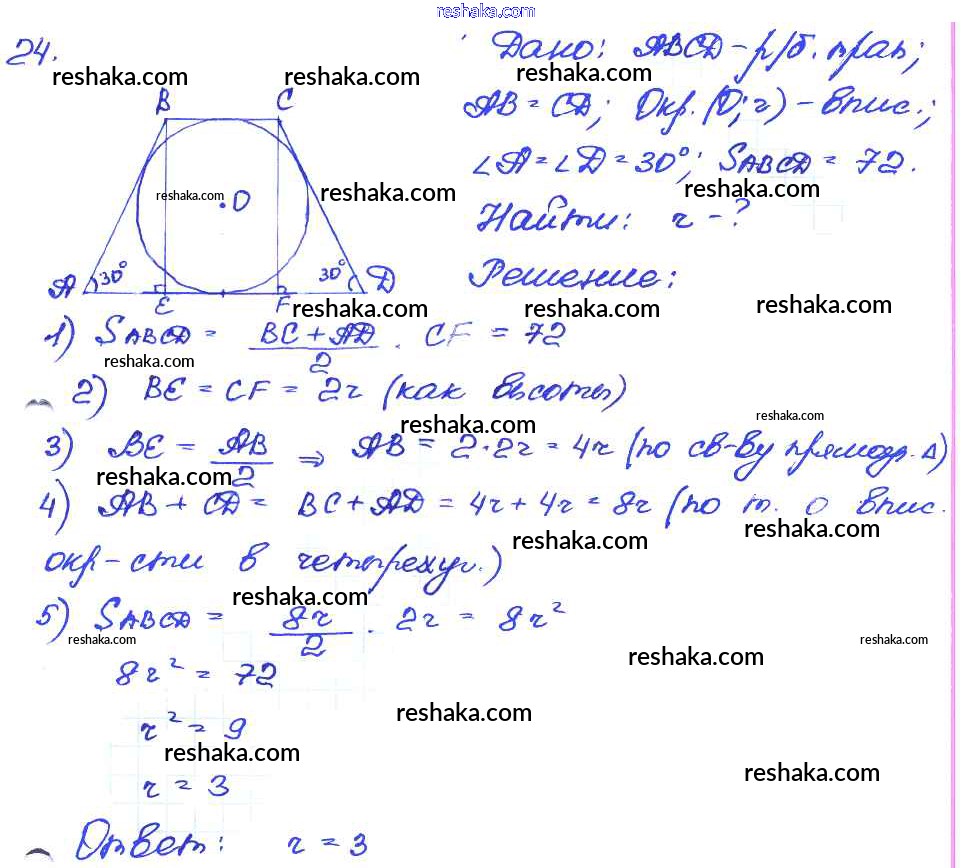 reshaka.com
24.
Дано: ABCD – р/б. трап;
reshaka.com reshaka.com reshaka.com
AB = CD; Окр. (O; r) – впис.;
B C
∠A = ∠D = 30°; S ABCD = 72.
reshaka.com reshaka.com reshaka.com
O
Найти: r – ?
Решение:
A 30° 30° D
E F
reshaka.com reshaka.com reshaka.com
1) S ABCD = (BC + AD)/2 · CF = 72
reshaka.com
2) BE = CF = 2r (как высоты)
reshaka.com reshaka.com
3) BE = AB/2 ⇒ AB = 2·2r = 4r (по св-ву прямоуг. Δ)
reshaka.com
4) AB + CD = BC + AD = 4r + 4r = 8r (по т. о впис.
reshaka.com reshaka.com
окр-сти в четырехуг.)
reshaka.com
5) S ABCD = 8r/2 · 2r = 8r²
reshaka.com reshaka.com
reshaka.com
8r² = 72
reshaka.com
r² = 9
reshaka.com
reshaka.com
r = 3
Ответ: r = 3